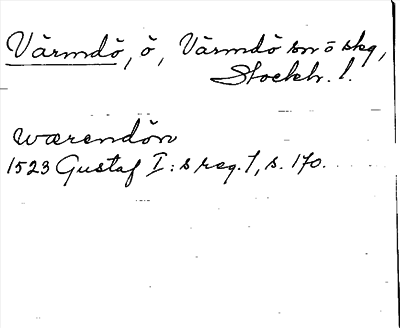 Värmdö, ö, Värmdö sn o skg,
Stockh. l.
wærendön
1523 Gustaf I:s reg. 1, s. 170.